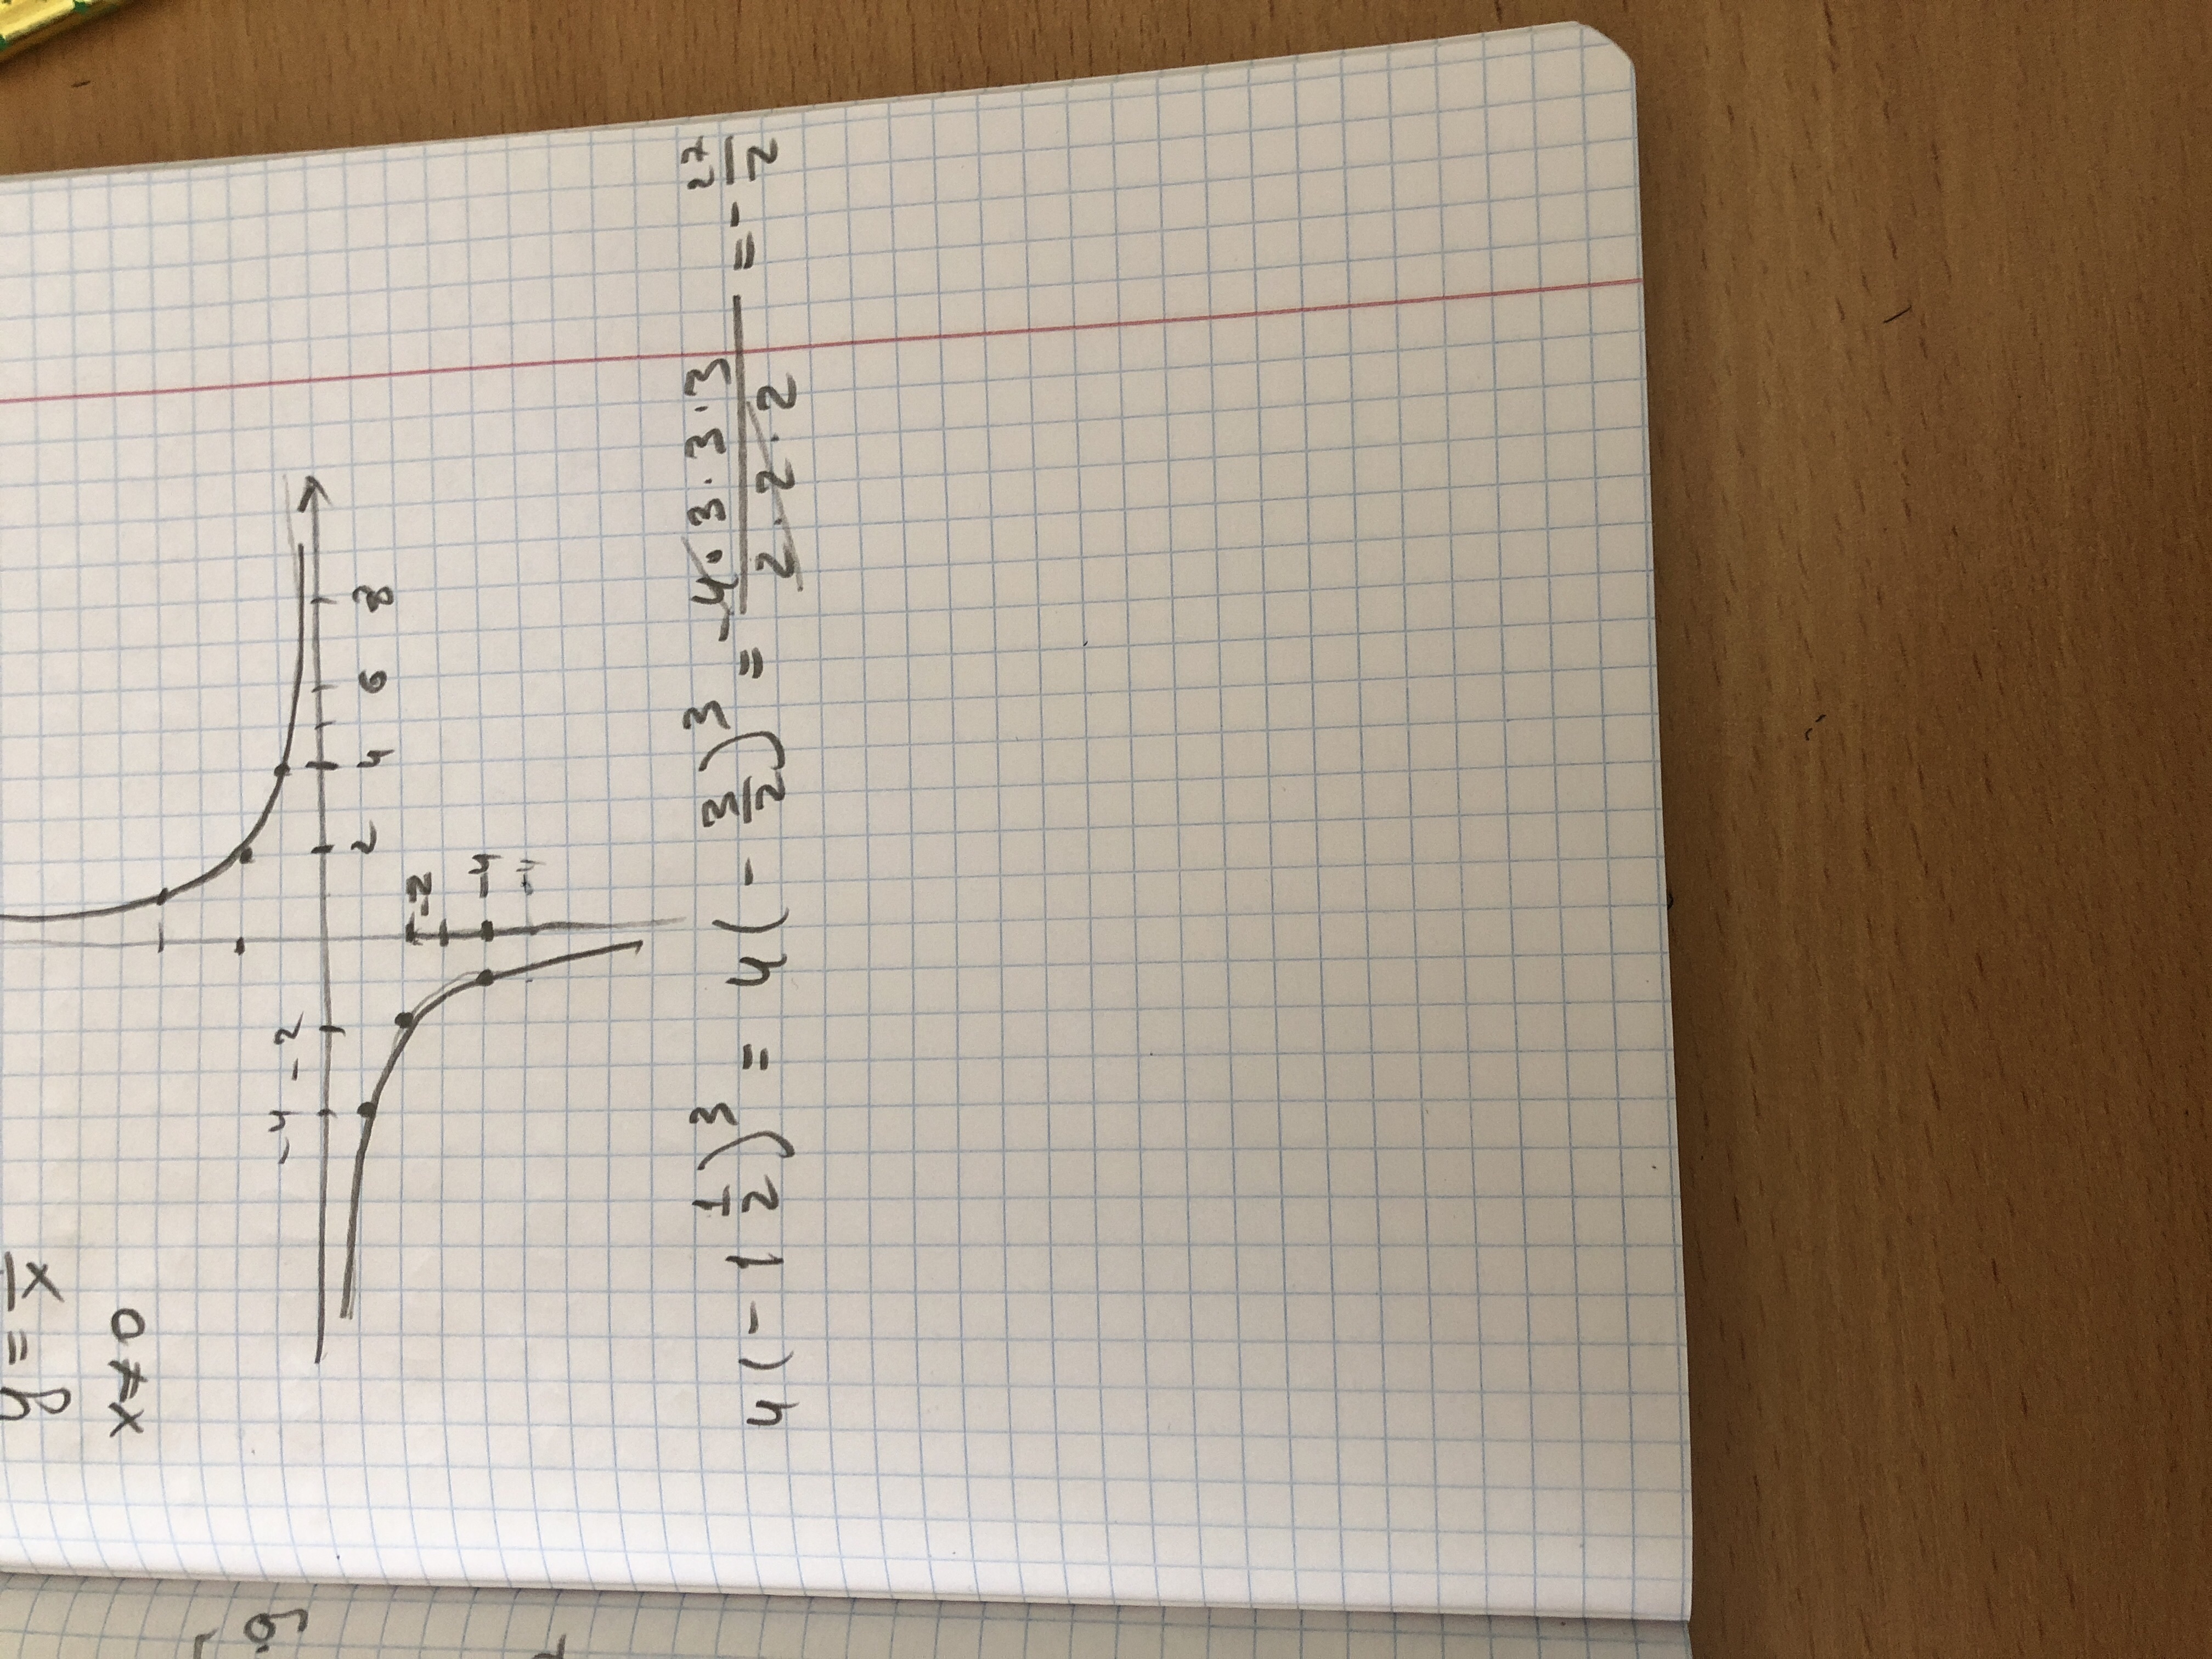 y = —/x
x ≠ 0
-4 -2 2 4 6 8
-2
-4
4(-1 1/2)³ = 4(-3/2)³ = -4·3·3·3/2·2·2 = -27/2